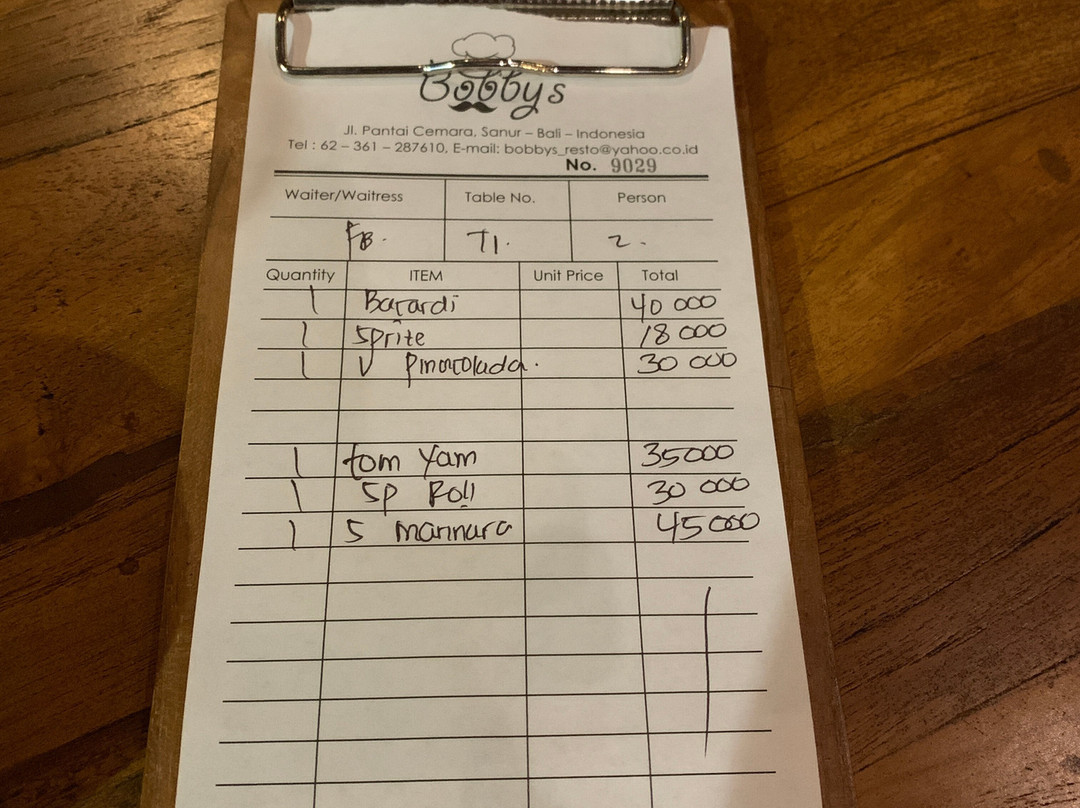 Bobbys
Jl. Pantai Cemara, Sanur – Bali – Indonesia
Tel : 62 – 361 – 287610, E-mail: bobbys_resto@yahoo.co.id
No. 9029
Waiter/Waitress Table No. Person
FB. T1. 2.
Quantity ITEM Unit Price Total
1 Bacardi 40 000
1 Sprite 18 000
1 V Pinacolada. 30 000
1 tom Yam 35000
1 SP Roll 30 000
1 S mannara 45000